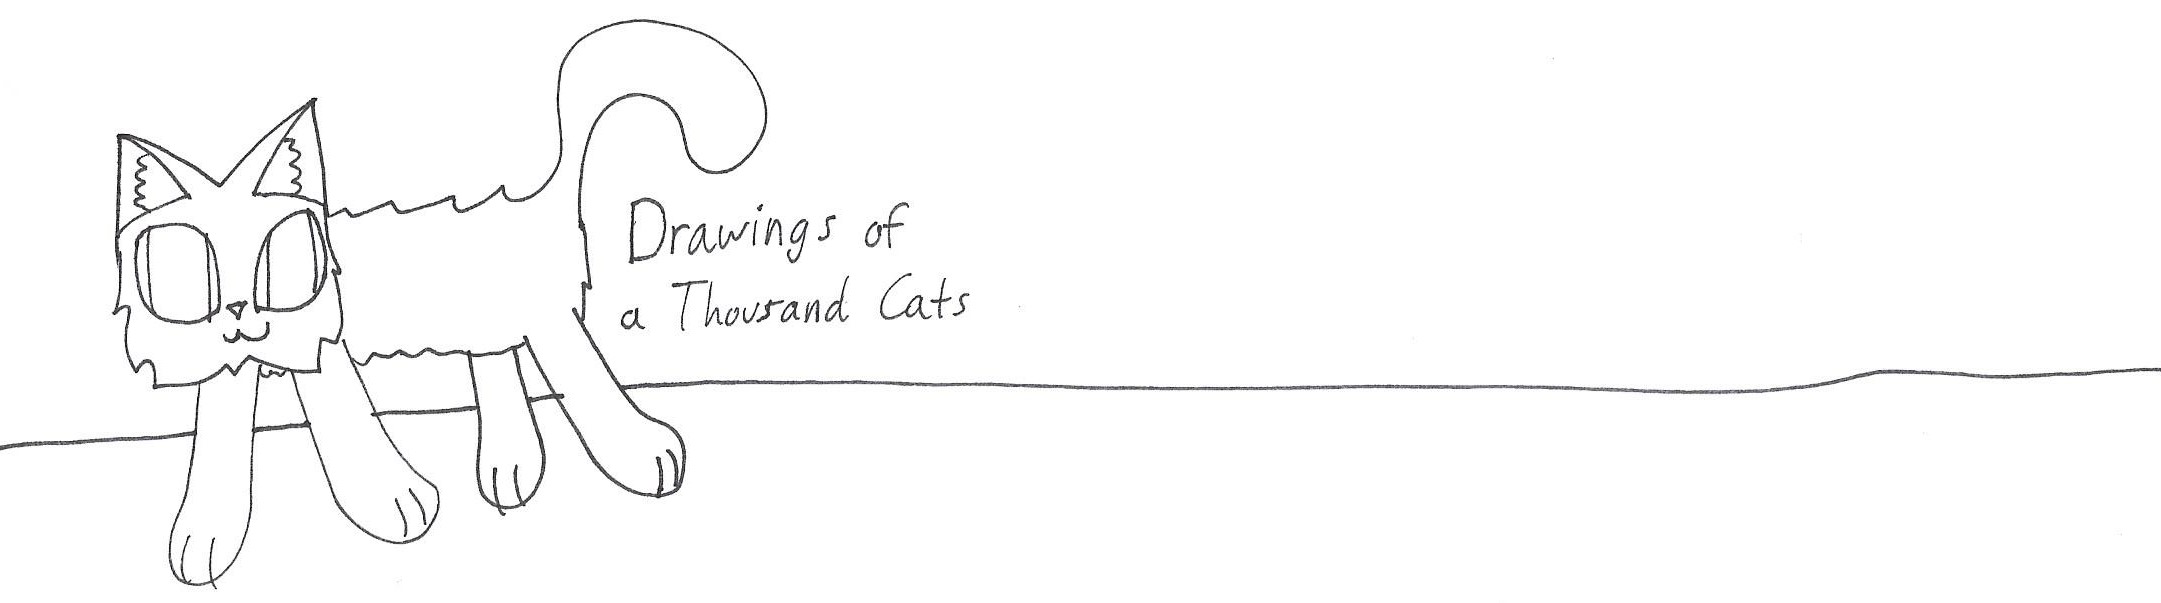 Drawings of
a Thousand Cats